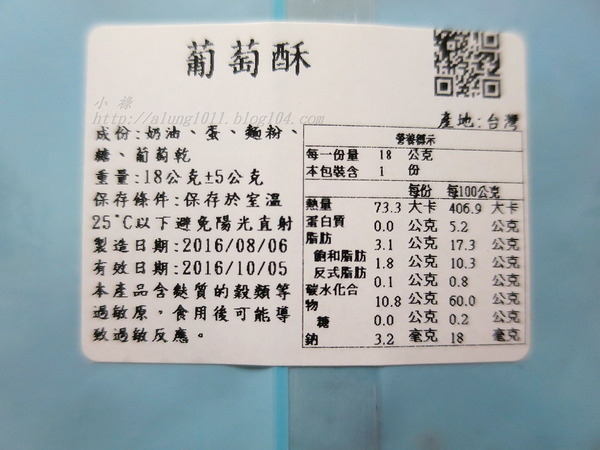 葡萄酥
小祿
http://alung1011.blog104.com
產地:台灣
成份:奶油、蛋、麵粉、
糖、葡萄乾
重量:18公克±5公克
保存條件:保存於室溫
25°C以下避免陽光直射
製造日期:2016/08/06
有效日期:2016/10/05
本產品含麩質的穀類等
過敏原,食用後可能導
致過敏反應。
營養標示
每一份量 18 公克
本包裝含 1 份
每份 每100公克
熱量 73.3 大卡 406.9 大卡
蛋白質 0.0 公克 5.2 公克
脂肪 3.1 公克 17.3 公克
飽和脂肪 1.8 公克 10.3 公克
反式脂肪 0.1 公克 0.8 公克
碳水化合
物 10.8 公克 60.0 公克
糖 0.0 公克 0.2 公克
鈉 3.2 毫克 18 毫克